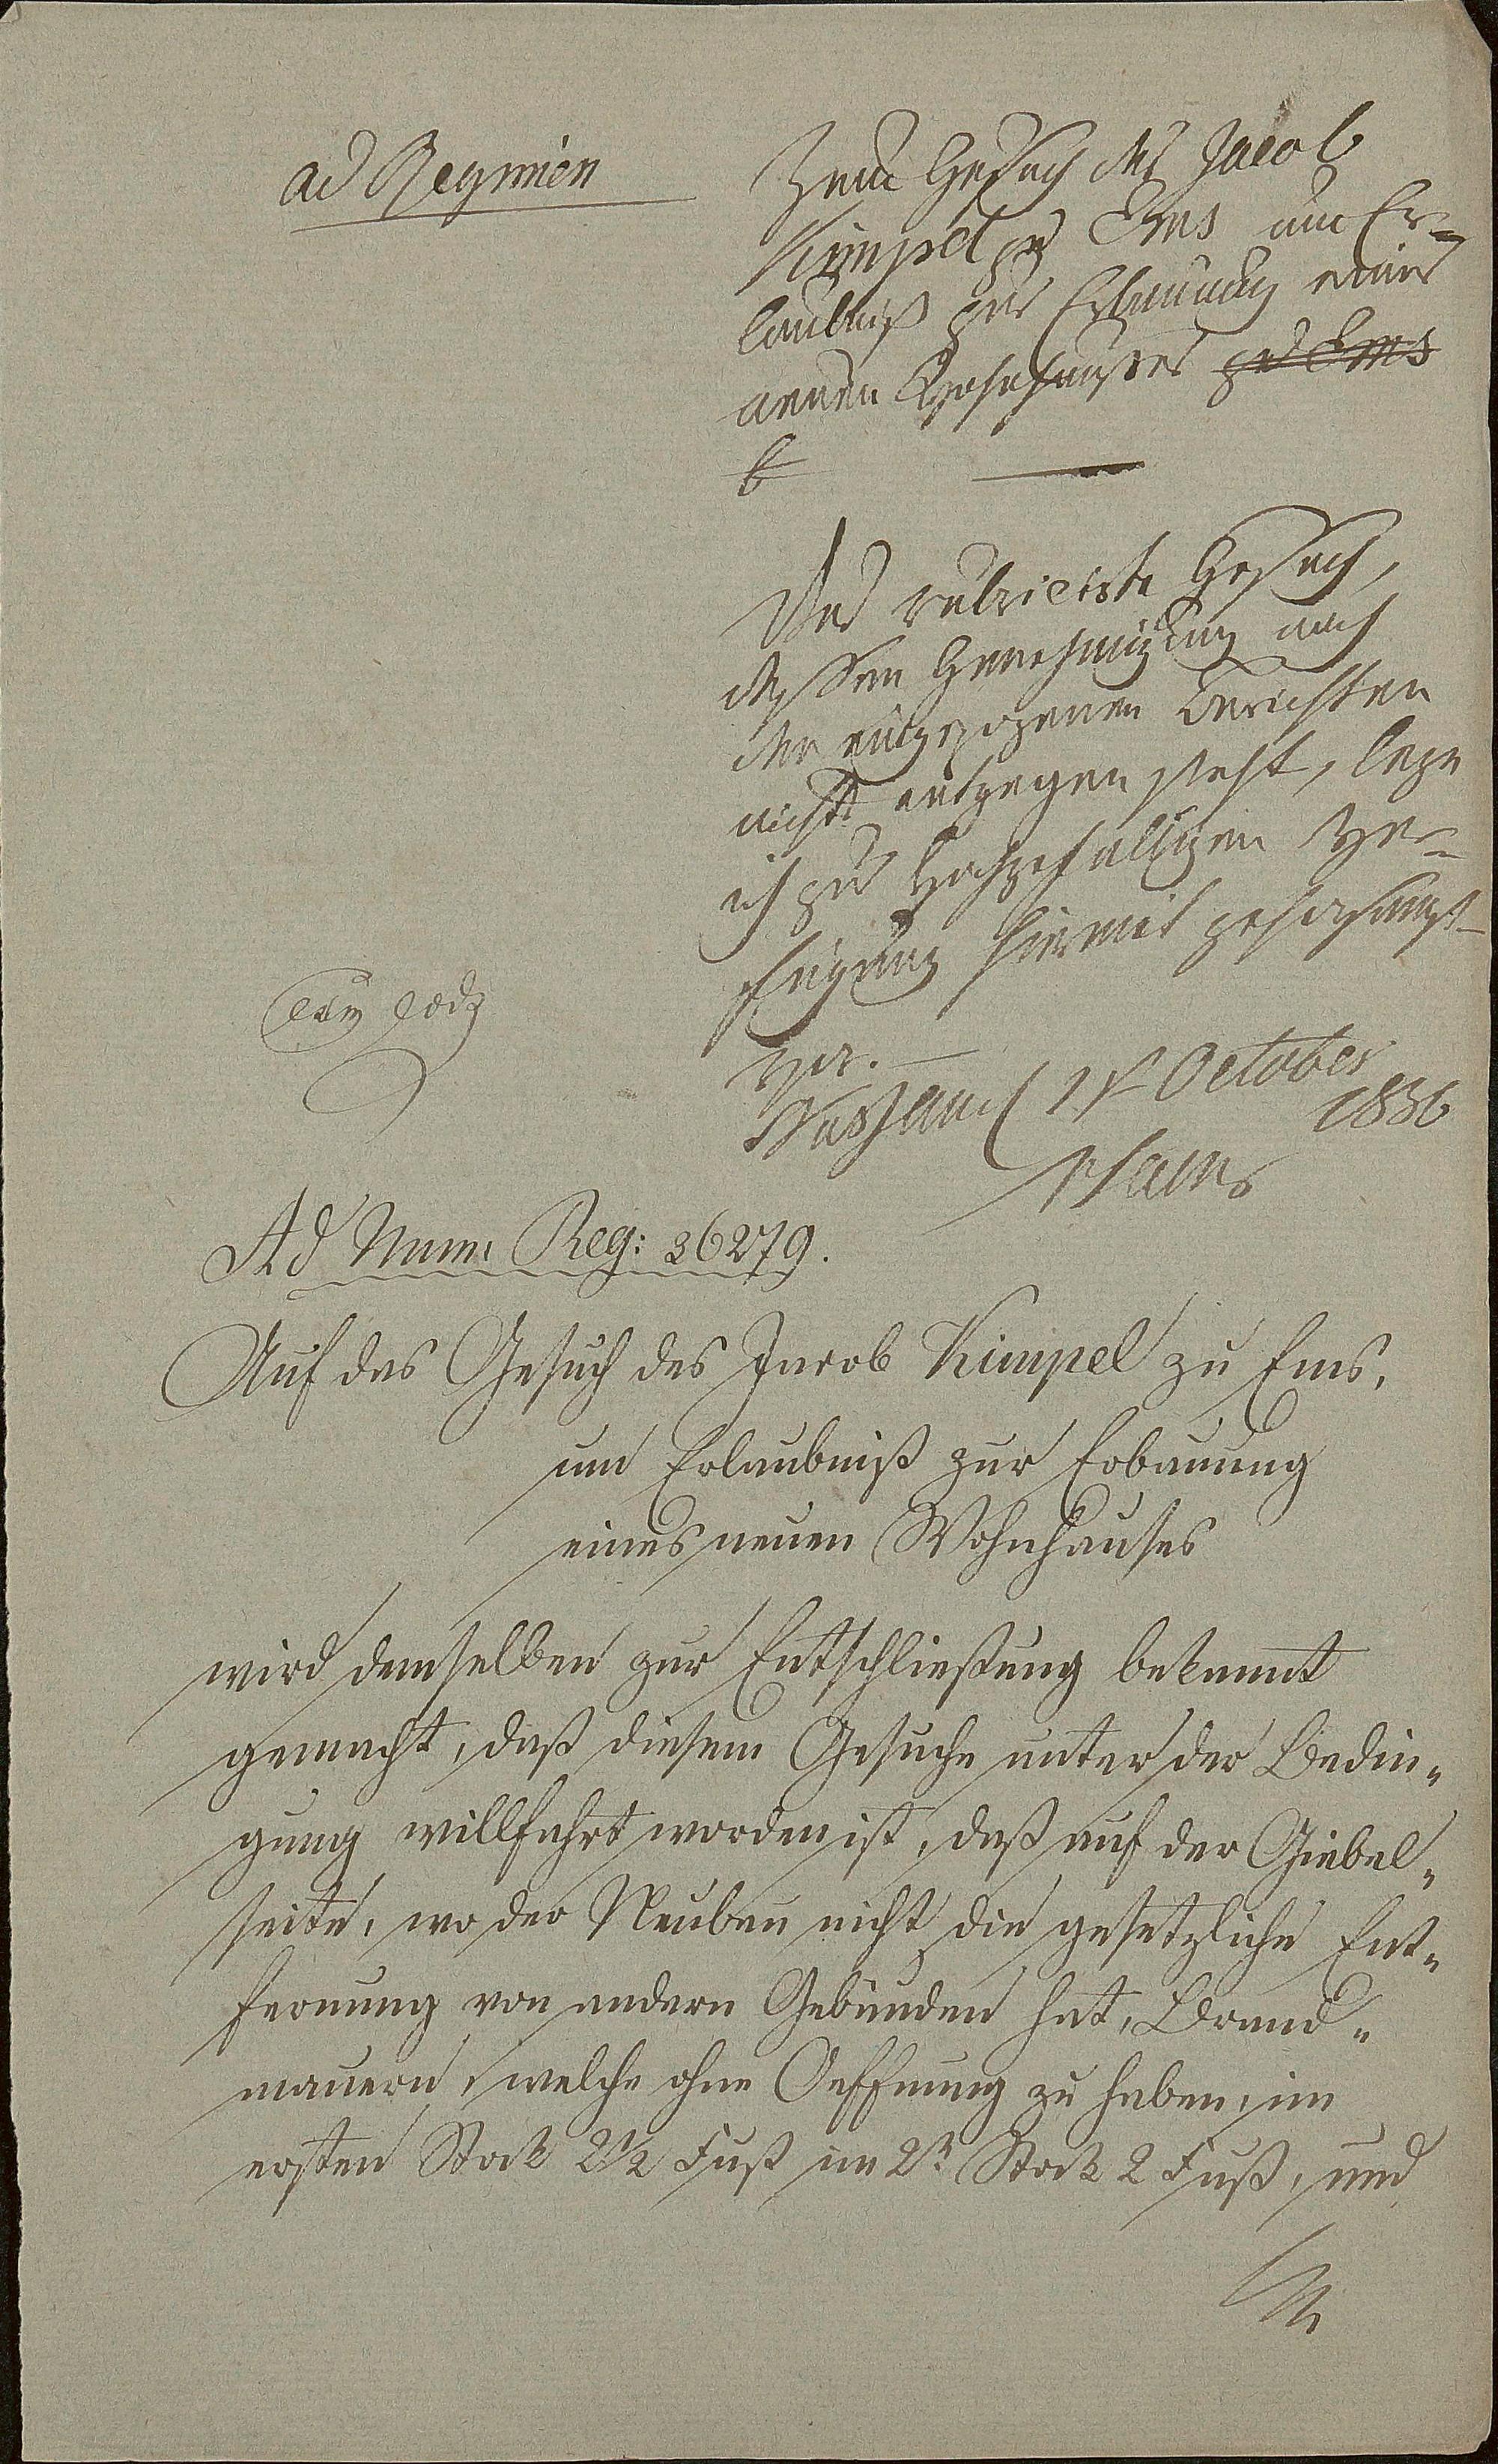 ad Regimen
Zum Gesuch des Jacob
Kimpel zu Ems um Er-
laubniß zur Erbauung eines
neuen Wohnhauses zu Ems
b
Das rubricirte Gesuch,
dessen Genehmigung nach
den eingezogenen Berichten
nichts entgegen steht, lege
ich zur hochgefälligen Ver-
fügung hiermit gehorsamst
vor.
Nassau 1t October
1836
cum
Ad Num. Reg: 36279.
Auf das Gesuch des Jacob Kimpel zu Ems,
um Erlaubniß zur Erbauung
eines neuen Wohnhauses
wird demselben zur Entschließung bekannt
gemacht, daß diesem Gesuche unter der Bedin-
gung willfahrt worden ist, daß auf der Giebel-
seite, wo der Neubau nicht die gesetzliche Ent-
fernung von andern Gebäuden hat, Brand-
mauern, welche ohne Oeffnung zu haben, im
ersten Stock 2½ Fuß im 2n Stock 2 Fuß, und